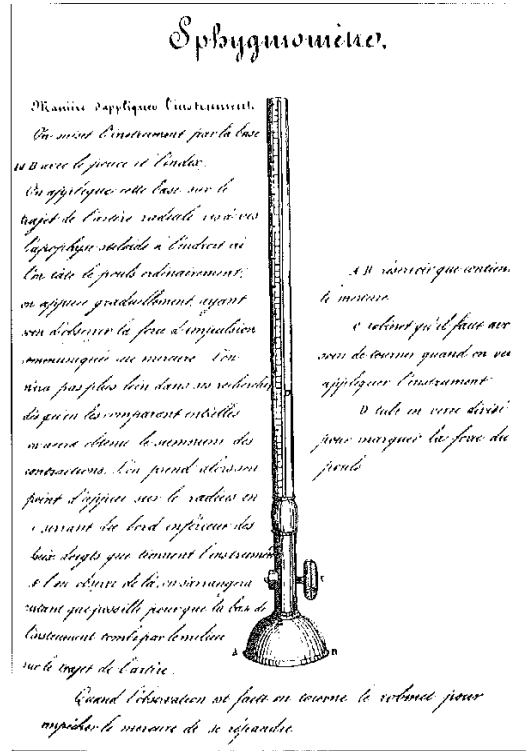 Sphygmomètre.
Manière d'appliquer l'instrument.
On saisit l'instrument par la base
A B avec le pouce et l'index.
On applique cette base sur le
trajet de l'artère radiale vis à vis
l'apophyse styloïde à l'endroit où
l'on tâte le pouls ordinairement;
on appuie graduellement, ayant
soin d'observer la force d'impulsion
communiquée au mercure. l'on
n'ira pas plus loin dans ses recherches
dès qu'en les comparant entr'elles
on aura obtenu le summum des
contractions. l'on prend alors son
point d'appui sur le radius en
serrant du bord inférieur des
deux doigts que tiennent l'instrument
et l'on observe de là, on s'arrangera
autant que possible pour que la base de
l'instrument tombe par le milieu
sur le trajet de l'artère.
A B réservoir que contient
le mercure
C robinet qu'il faut avoir
soin de tourner quand on veut
appliquer l'instrument
D tube en verre divisé
pour marquer la force du
pouls
C
A B
Quand l'observation est faite on tourne le robinet pour
empêcher le mercure de se répandre